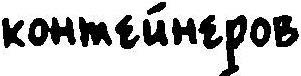 контейнеров